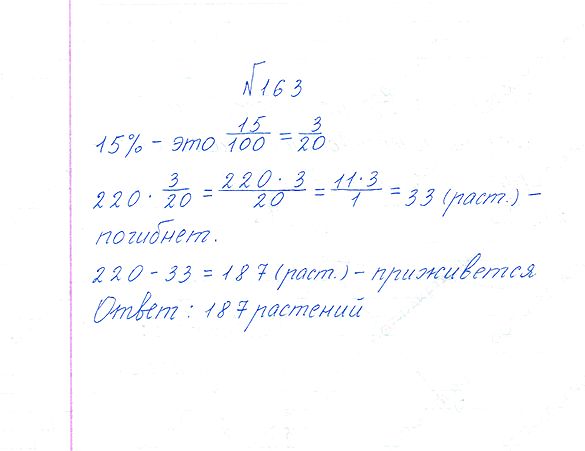 №163
15% – это 15/100 = 3/20
220 · 3/20 = 220·3/20 = 11·3/1 = 33 (раст.) –
погибнет.
220 – 33 = 187 (раст.) – приживется
Ответ: 187 растений